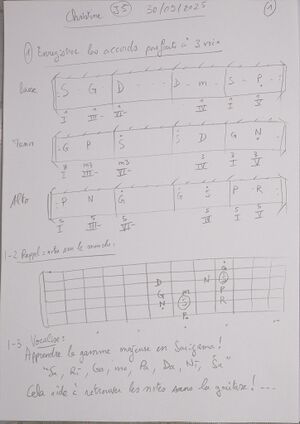 Christine 35 30/09/2025 1
1 Enregistrer les accords parfaits à 3 voix
Basse S G D D m S P
1 1 1 1 1 1
I III VI IV I V
Tenor G P S S D G N
3 m3 m3 3 3 3
I III VI IV I V
Alto P N G G S P R
5 5 5 5 5 5
I III VI IV I V
1-2 Rappel : notes sur le manche :
G
D N S
G m P
N S R
P
1-3 Vocalise :
Apprendre la gamme majeure en Sarigama !
"Sa, Ri, Ga, ma, Pa, Da, Ni, Sa"
Cela aide à retrouver les notes sous la guitare ! ...